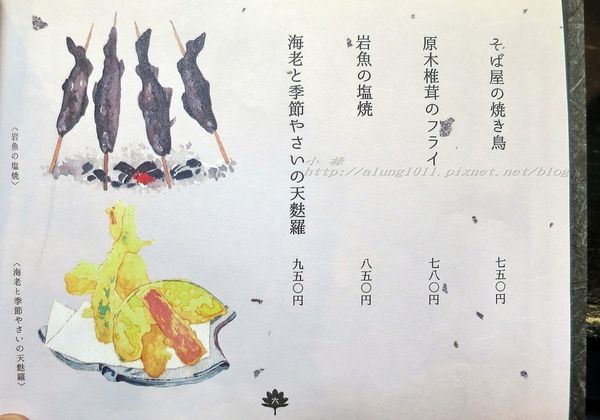 そば屋の焼き鳥
七五〇円
原木椎茸のフライ
七八〇円
岩魚の塩焼
八五〇円
海老と季節やさいの天麩羅
九五〇円
〈岩魚の塩焼〉
〈海老と季節やさいの天麩羅〉
六
小綠
http://alung1011.pixnet.net/blog